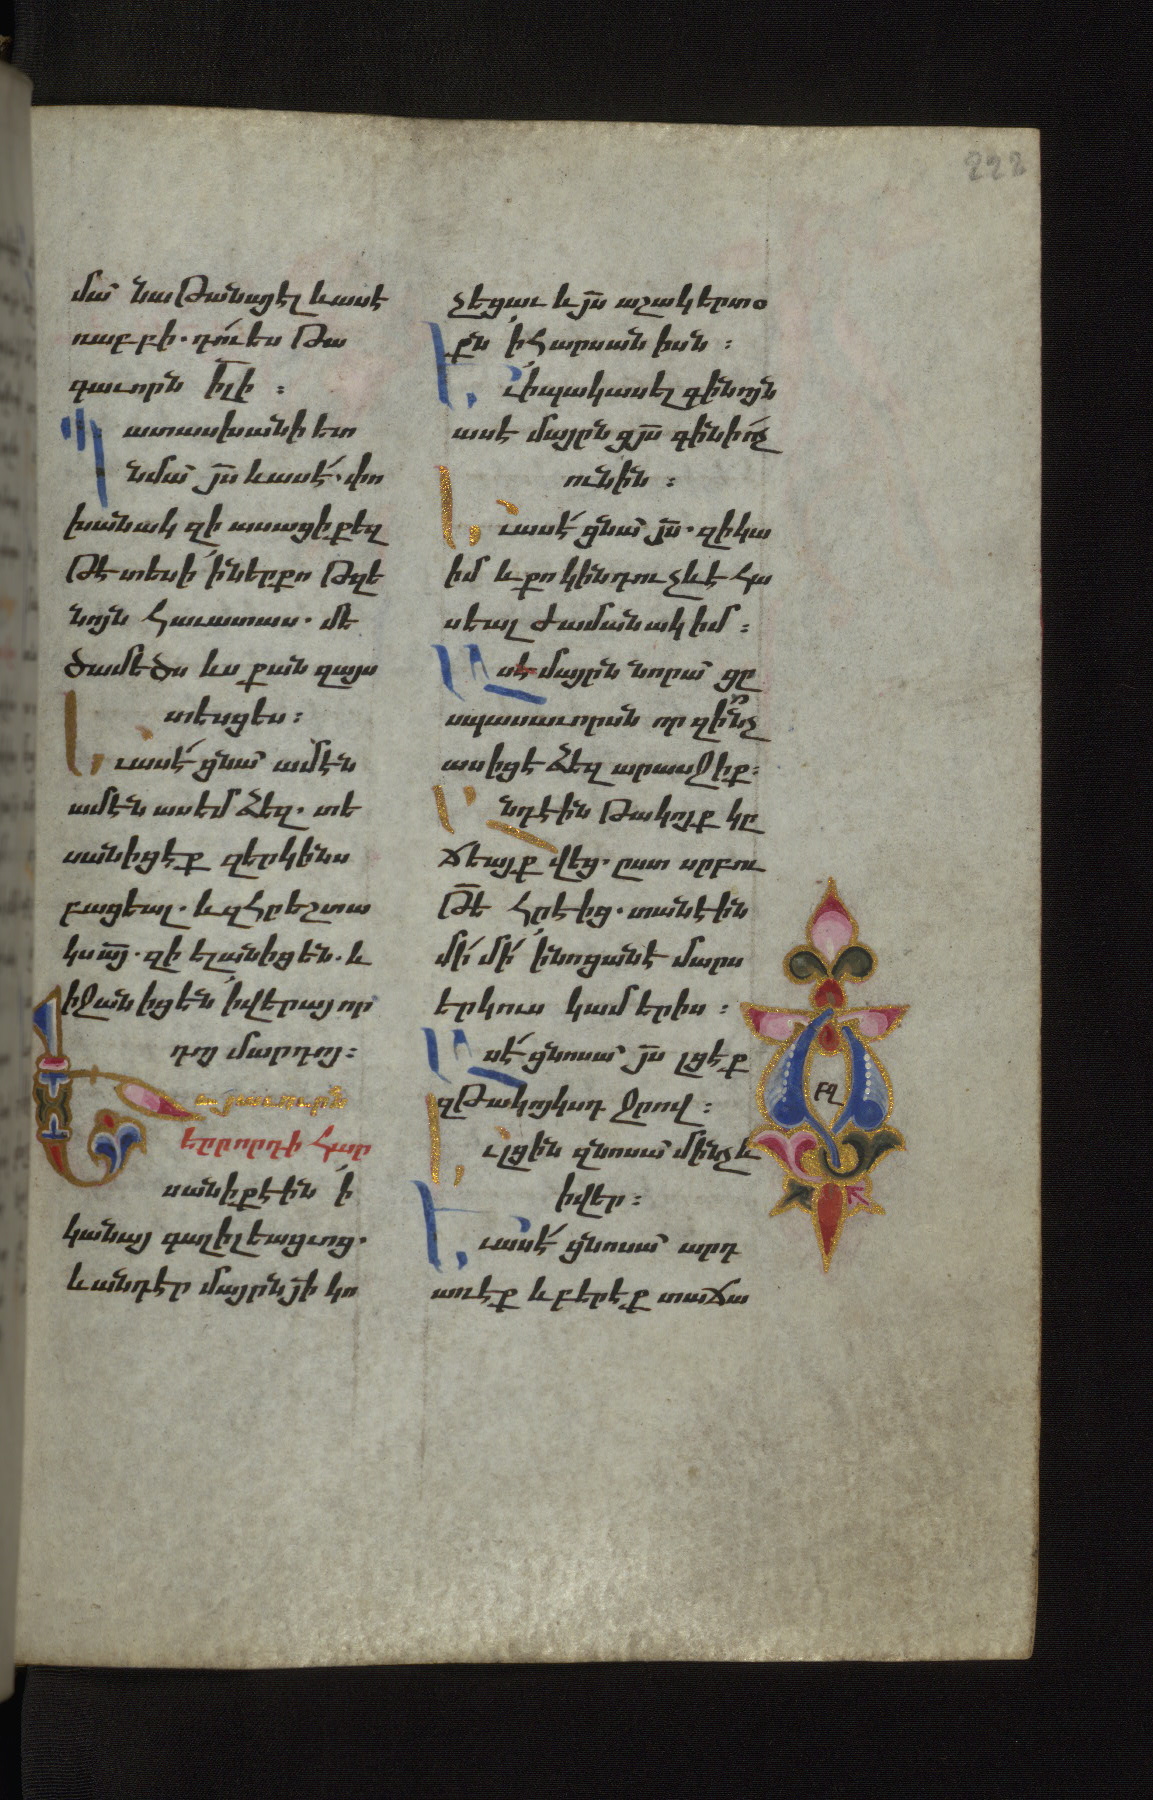 222
մա՟ նաթանայէլ և ասէ
ռաբբի. դու ես թա
գաւորն ի՟լի :
Պատասխանի ետ
նմա՟ յ՟ս և ասէ. փո
խանակ զի ասացի քեզ
թէ տեսի ի ներքո թզե
նոյն հաւատաս. մե
ծամեծս ևս քան զայս
տեսցես :
Եւ ասէ ցնա՟ ամէն
ամէն ասեմ ձեզ. տե
սանիցէք զերկինս
բացեալ. և զհրեշտա
կս ա՟յ. զի ելանիցեն. և
իջանիցեն ի վերայ որ
դոյ մարդոյ :
Եւ յաւուրն
երրորդի հար
սանիք էին ի
կանայ գալիլեացւոց.
և անդ էր մայրն յ՟ի կո
չեցաւ և յ՟ս աշակերտօ
քն ի հարսանիսն :
Եւ ի պակասել գինոյն
ասէ մայրն ցյ՟ս գինի ոչ
ունին :
Եւ ասէ ցնա՟ յ՟ս. զի կա
իմ և քո կին դու չև է հա
սեալ ժամանակ իմ :
Ասէ մայրն նորա՟ ցը
սպասաւորսն որ զի՞նչ
ասիցէ ձեզ արասջիք :
Եւ անդ էին թակոյք կը
ճեայք վեց. ըստ սրբու
թե՟ հրէից. տանէին
մի մի ի նոցանէ մարս
երկուս կամ երիս :
Ասէ ցնոսա՟ յ՟ս լցէք
զթակոյկսդ ջրով :
Եւ լցին զնոսա՟ մինչև
ի վեր :
Եւ ասէ ցնոսա՟ արդ
առէք և բերէք տաճա
բզ